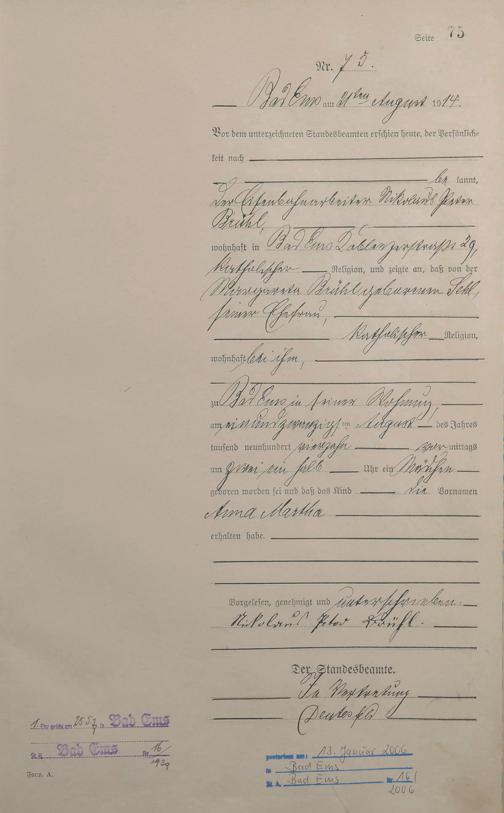 Seite 75
Nr. 75.
Bad Ems am 21ten August 1914.
Vor dem unterzeichneten Standesbeamten erschien heute, der Persönlich-
keit nach
be kannt,
der Eisenbahnarbeiter Nikolaus Peter
Brühl,
wohnhaft in Bad Ems Koblenzerstraße 29,
katholischer Religion, und zeigte an, daß von der
Margareta Brühl geborenen
seiner Ehefrau,
katholischer Religion,
wohnhaft bei ihm,
zu Bad Ems in seiner Wohnung,
am einundzwanzigsten August des Jahres
tausend neunhundert vierzehn vor mittags
um zwei ein halb Uhr ein Mädchen
geboren worden sei und daß das Kind die Vornamen
Anna Martha
erhalten habe.
Vorgelesen, genehmigt und unterschrieben.
Nikolaus Peter Brühl.
Der Standesbeamte.
In Vertretung
1. Bad Ems
St. A. Bad Ems Nr. 16/
1939
Form. A.
gestorben am: 13. Januar 2006
in Bad Ems
St. A. Bad Ems Nr. 16/
2006